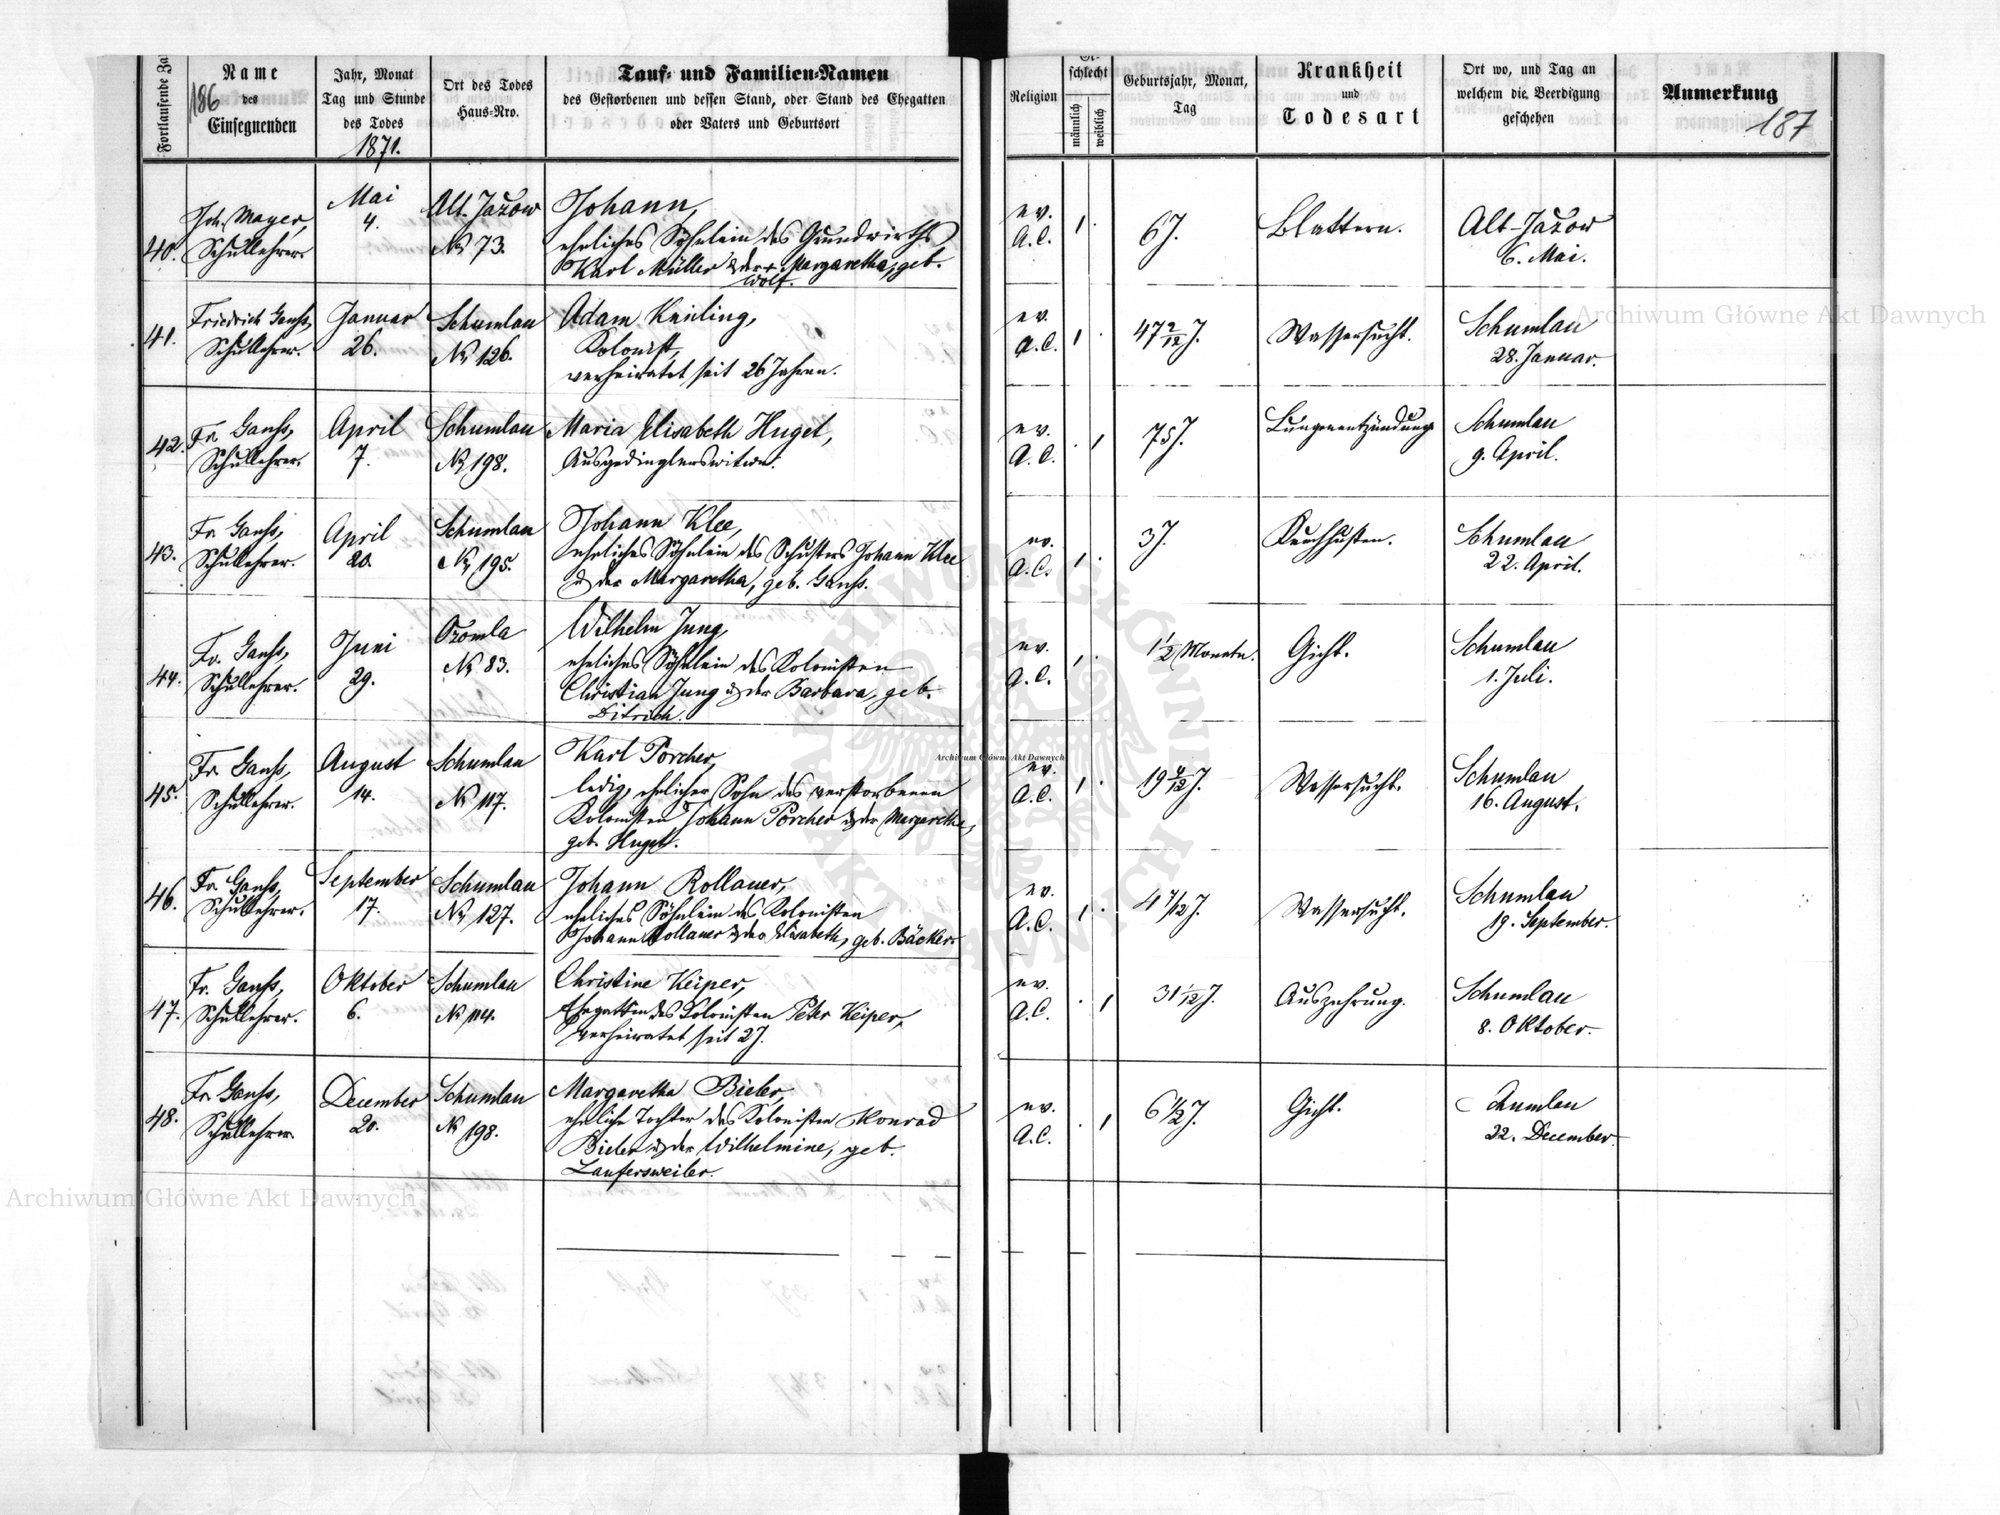 Fortlaufende Za
186
Name
des
Einsegnenden
Jahr, Monat
Tag und Stunde
des Todes
1871.
Ort des Todes
Haus-Nro.
Tauf- und Familien-Namen
des Gestorbenen und dessen Stand, oder Stand des Ehegatten
oder Vaters und Geburtsort
Religion
schlecht
männlich
weiblich
Geburtsjahr, Monat,
Tag
Krankheit
und
Todesart
Ort wo, und Tag an
welchem die Beerdigung
geschehen
Anmerkung
187
40.
Joh. Mayer,
Schullehrer.
Mai
4.
Alt-Jažow
No 73.
Johann,
eheliches Söhnlein des Grundwirths
Karl Müller & der + Margaretha, geb.
Wolf.
ev.
A.C.
1.
6 J.
Blattern.
Alt-Jažow
6. Mai.
41.
Friedrich Ganss,
Schullehrer.
Januar
26.
Schumlau
No 126.
Adam Keiling,
Kolonist,
verheiratet seit 26 Jahren.
ev.
A.C.
1.
47 2/12 J.
Wassersucht.
Schumlau
28. Januar.
42.
Fr. Ganss,
Schullehrer.
April
7.
Schumlau
No 198.
Maria Elisabeth Huget,
Ausgedinglerswitwe.
ev.
A.C.
1
75 J.
Lungenentzündung
Schumlau
9. April.
43.
Fr. Ganss,
Schullehrer.
April
20.
Schumlau
No 195.
Johann Klee,
eheliches Söhnlein des Schusters Johann Klee
& der Margaretha, geb. Ganss.
ev.
A.C.
1.
3 J.
Keuchhusten.
Schumlau
22. April.
44.
Fr. Ganss,
Schullehrer.
Juni
29.
Ozomla
No 83.
Wilhelm Jung,
eheliches Söhnlein des Kolonisten
Christian Jung & der Barbara, geb.
Ditrich.
ev.
A.C.
1.
1 1/2 Monate.
Gicht.
Schumlau
1. Juli.
45.
Fr. Ganss,
Schullehrer.
August
14.
Schumlau
No 117.
Karl Porcher,
ledig, ehelicher Sohn des verstorbenen
Kolonisten Johann Porcher & der Margaretha,
geb. Huget.
ev.
A.C.
1.
19 4/12 J.
Wassersucht.
Schumlau
16. August.
46.
Fr. Ganss,
Schullehrer.
September
17.
Schumlau
No 127.
Johann Rollauer,
eheliches Söhnlein des Kolonisten
Johann Rollauer & der Elisabeth, geb. Bäcker.
ev.
A.C.
1.
4 7/12 J.
Wassersucht.
Schumlau
19. September.
47.
Fr. Ganss,
Schullehrer.
Oktober
6.
Schumlau
No 114.
Christine Keiper,
Ehegattin des Kolonisten Peter Keiper,
verheiratet seit 2 J.
ev.
A.C.
1
31 1/12 J.
Auszehrung.
Schumlau
8. Oktober.
48.
Fr. Ganss,
Schullehrer.
December
20.
Schumlau
No 198.
Margaretha Bieler,
eheliche Tochter des Kolonisten Konrad
Bieler & der Wilhelmine, geb.
Laufersweiler.
ev.
A.C.
1
6 1/2 J.
Gicht.
Schumlau
22. December.
Archiwum Główne Akt Dawnych
Archiwum Główne Akt Dawnych
Archiwum Główne Akt Dawnych
ARCHIWUM GŁÓWNE AKT DAWNYCH